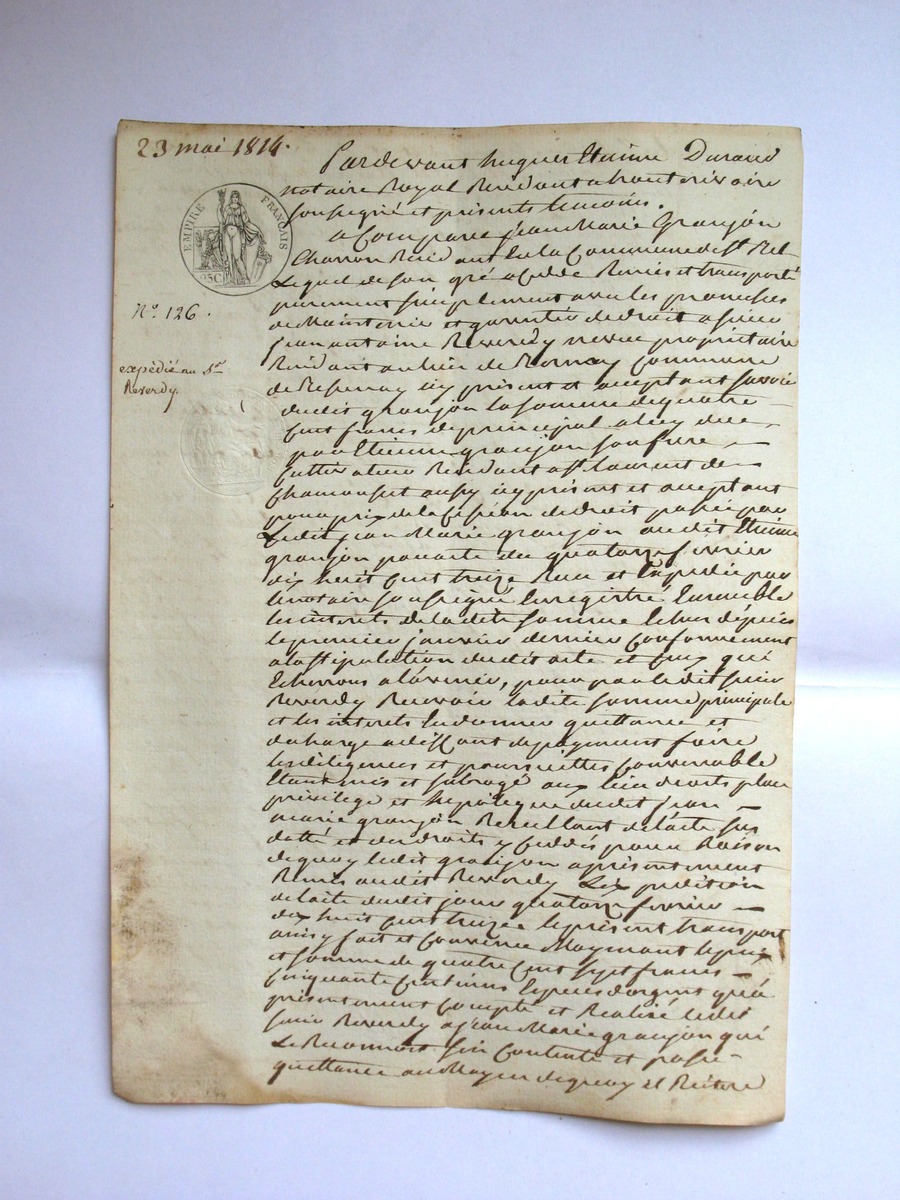 23 mai 1814.
Pardevant hugues Etienne Durand
notaire Royal Residant a hauterivoire
soussigné et présents témoins.
EMPIRE FRANÇAIS
25C
a Comparu jean Marie Granjon
Charron Residant en la Commune de St
Lequel de son gré a Cedde Remis et transporté
purement simplement avec les promesses
de Maintenir et garentir de droit a sieur
N° 126.
jean antoine Reverdy neveu propriétaire
Residant au lieu de Commune
expédié au Sr
Reverdy.
de icy présent et acceptant savoir
dudit granjon la somme de quatre
cent francs de principal a luy due
par Etienne granjon son frere
cultivateur Residant a st laurent de
Chamousset aussy icy présent et acceptant
pour prix de la Cession de droit passée par
Ledit jean Marie granjon audit Etienne
granjon par acte du quatorze fevrier
dix huit cent treize Recu et Expedie par
le notaire soussigné Enregistré Ensemble
les interets de la dite somme Echus depuis
le premier janvier dernier Conformement
a la stipulation dudit acte et ceux qui
Echerrons a l'avenir, pour par ledit sieur
Reverdy Recevoir ladite somme principale
et les interets En donner quittance et
decharge a deffaut de payement faire
les diligences et poursuittes Convenable
Etant mis et subrogé aux lieu droits place
privilege et hipoteque dudit jean
marie granjon Resultant de l'acte sus
datté et des droits y ceddés pour Raison
de quoy ledit granjon a présentement
Remis audit Reverdy Lexpedition
de l'acte dudit jour quatorze fevrier
dix huit cent treize le présent transport
ainsy fait et Convenu Moyennant le prix
et somme de quatre cent sept francs
Cinquante Centimes Especes d'argent qu'a
présentement Compté et Réalisé ledit
sieur Reverdy a jean Marie granjon qui
Le Reconnoit s'en Contente et passe
quittance au Moyen de quoy et